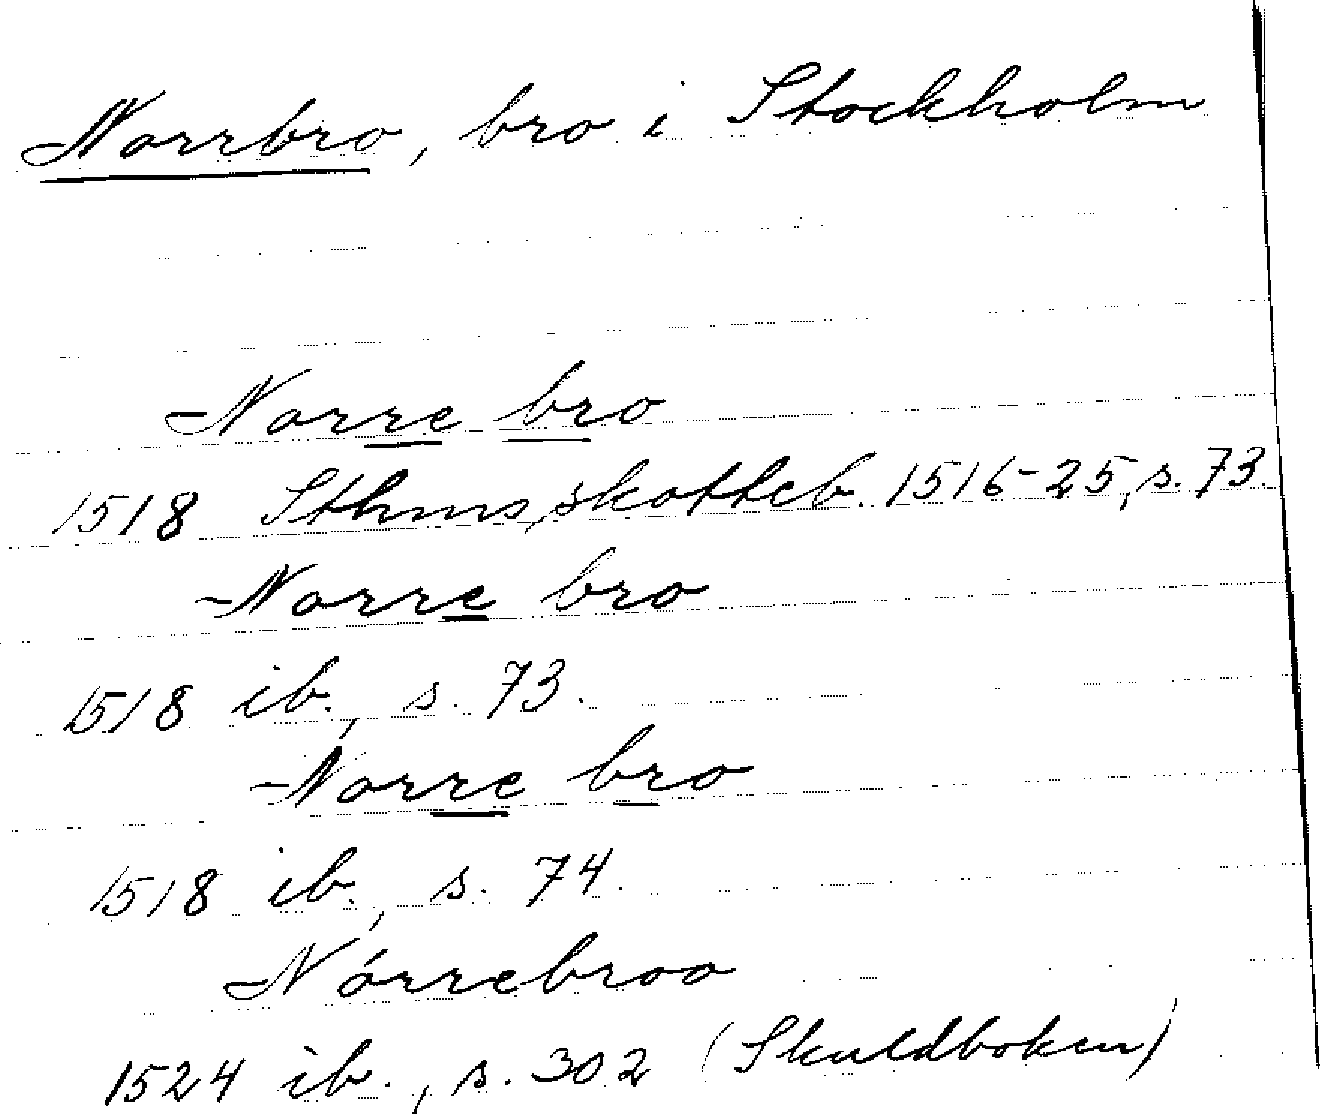 Norrbro, bro i Stockholm
Norre bro
1518 Sthms skotteb. 1516-25, s. 73.
Norre bro
1518 ib., s. 73.
Norre bro
1518 ib., s. 74.
Nórrebroo
1524 ib., s. 302 (Skuldboken)